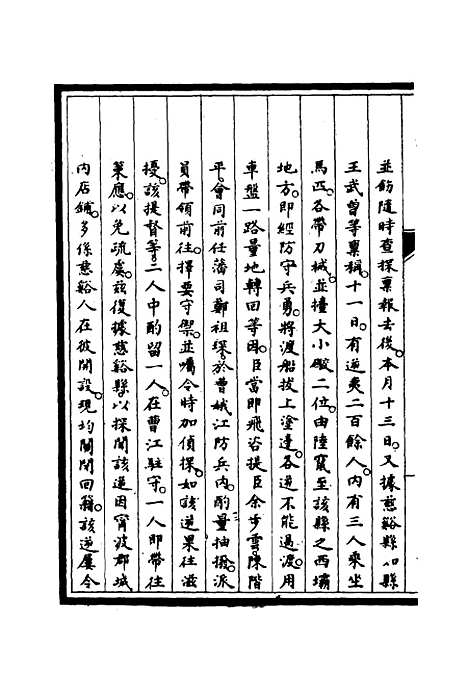 並飭隨時查探稟報去後。本月十三日。又據慈谿縣知縣
王武曾等稟稱。十一日。有逆夷二百餘人。內有三人乘坐
馬匹。各帶刀械。並擡大小礮二位。由陸竄至該縣之西壩
地方。即經防守兵勇。將渡船拔上塗邊。各逆不能過渡。用
車盤一路量地轉回等因。臣當即飛咨提臣余步雲陳階
平。會同前任藩司鄭祖琛。於曹娥江防兵內。酌量抽撥。派
員帶領前往。擇要守禦。並囑令時加偵探。如該逆果往滋
擾。該提督等二人中酌留一人。在曹江駐守。一人即帶往
策應。以免疏虞。茲復據慈谿縣以探聞該逆因甯波郡城
內店鋪。多係慈谿人在彼開設。現均關閉回籍。該逆屢令